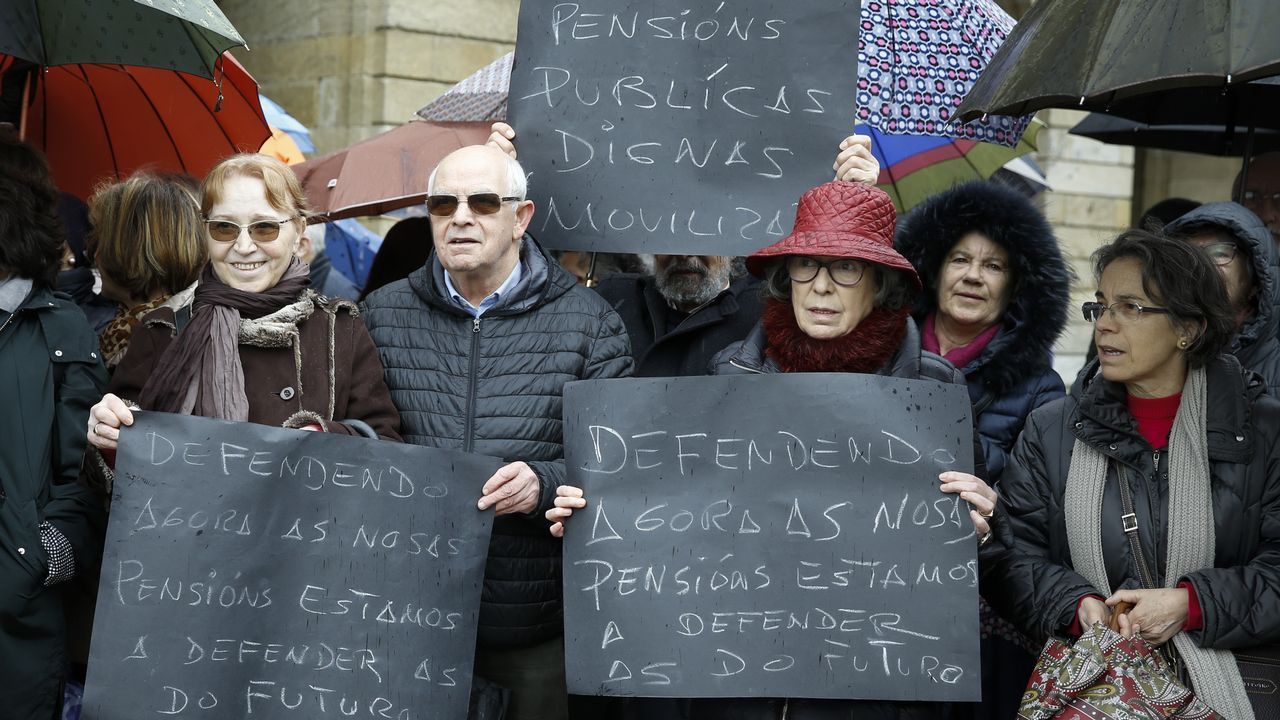 PENSIÓNS
PUBLÍCAS
DIGNAS
DEFENDENDO
AGORA AS NOSAS
PENSIÓNS ESTAMOS
A DEFENDER AS
DO FUTURO
DEFENDENDO
AGORA AS NOSAS
PENSIÓNS ESTAMOS
A DEFENDER
AS DO FUTURO